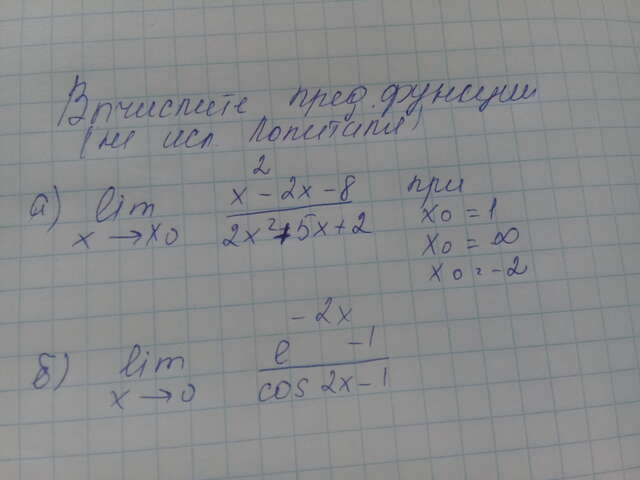 Вычислите пред. функции
(не исп. Лопиталя)
а) lim x→x0 x² - 2x - 8 / 2x² + 5x + 2 при
x0 = 1
x0 = ∞
x0 = -2
б) lim x→0 e^(-2x) - 1 / cos 2x - 1